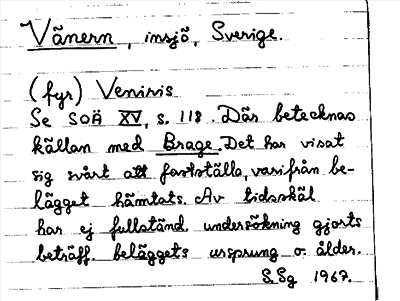 Vänern, insjö, Sverige.
(fyr) Veniris
Se SOÄ XV, s. 118. Där betecknas
källan med Brage. Det har visat
sig svårt att fastställa, varifrån be-
lägget hämtats. Av tidsskäl
har ej fullständ. undersökning gjorts
beträff. beläggets ursprung o. ålder.
S.Sg 1967.